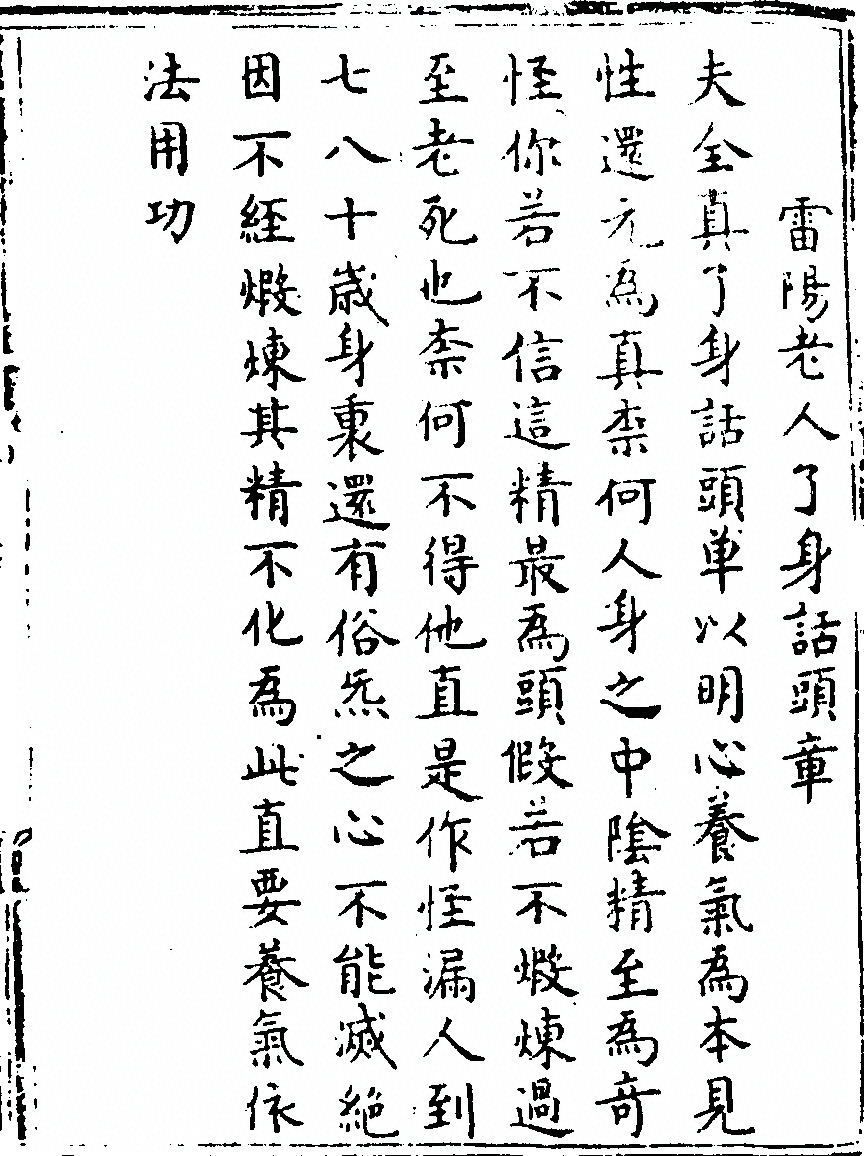 雷陽老人了身話頭章
夫全真了身話頭单以明心養氣為本見
性還元為真柰何人身之中陰精至為奇
怪你若不信這精最為頭假若不煅煉過
至老死也柰何不得他直是作怪漏人到
七八十歲身裏還有俗炁之心不能滅絕
因不經煅煉其精不化為此直要養氣依
法用功